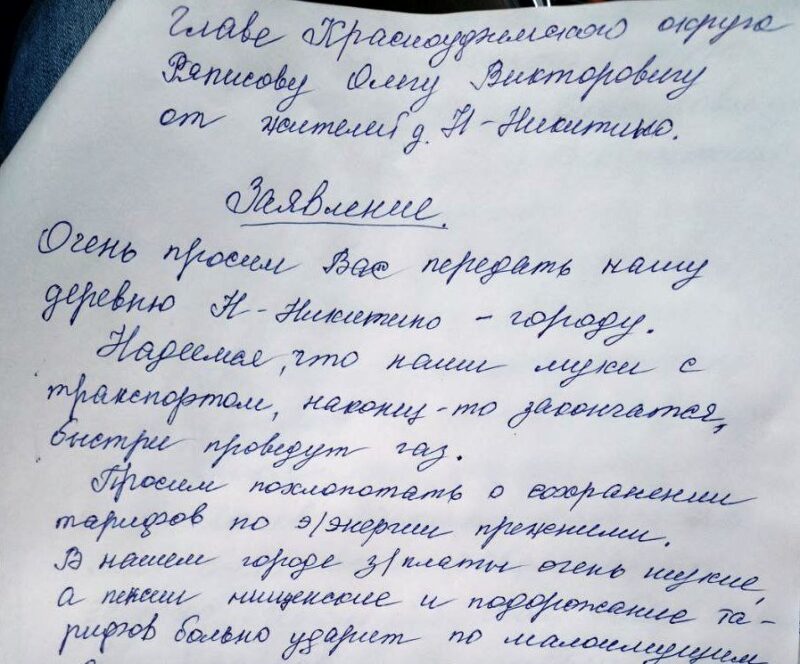 Главе Красноуфимского округа
Ряписову Олегу Викторовичу
от жителей д. Н-Никитино.
Заявление.
Очень просим Вас передать нашу
деревню Н-Никитино - городу.
Надеемся, что наши муки с
транспортом, наконец-то закончатся,
быстрее проведут газ.
Просим похлопотать о сохранении
тарифов по э/энергии прежними.
В нашем городе з/платы очень низкие,
а пенсии нищенские и подорожание та-
рифов больно ударит по малоимущим